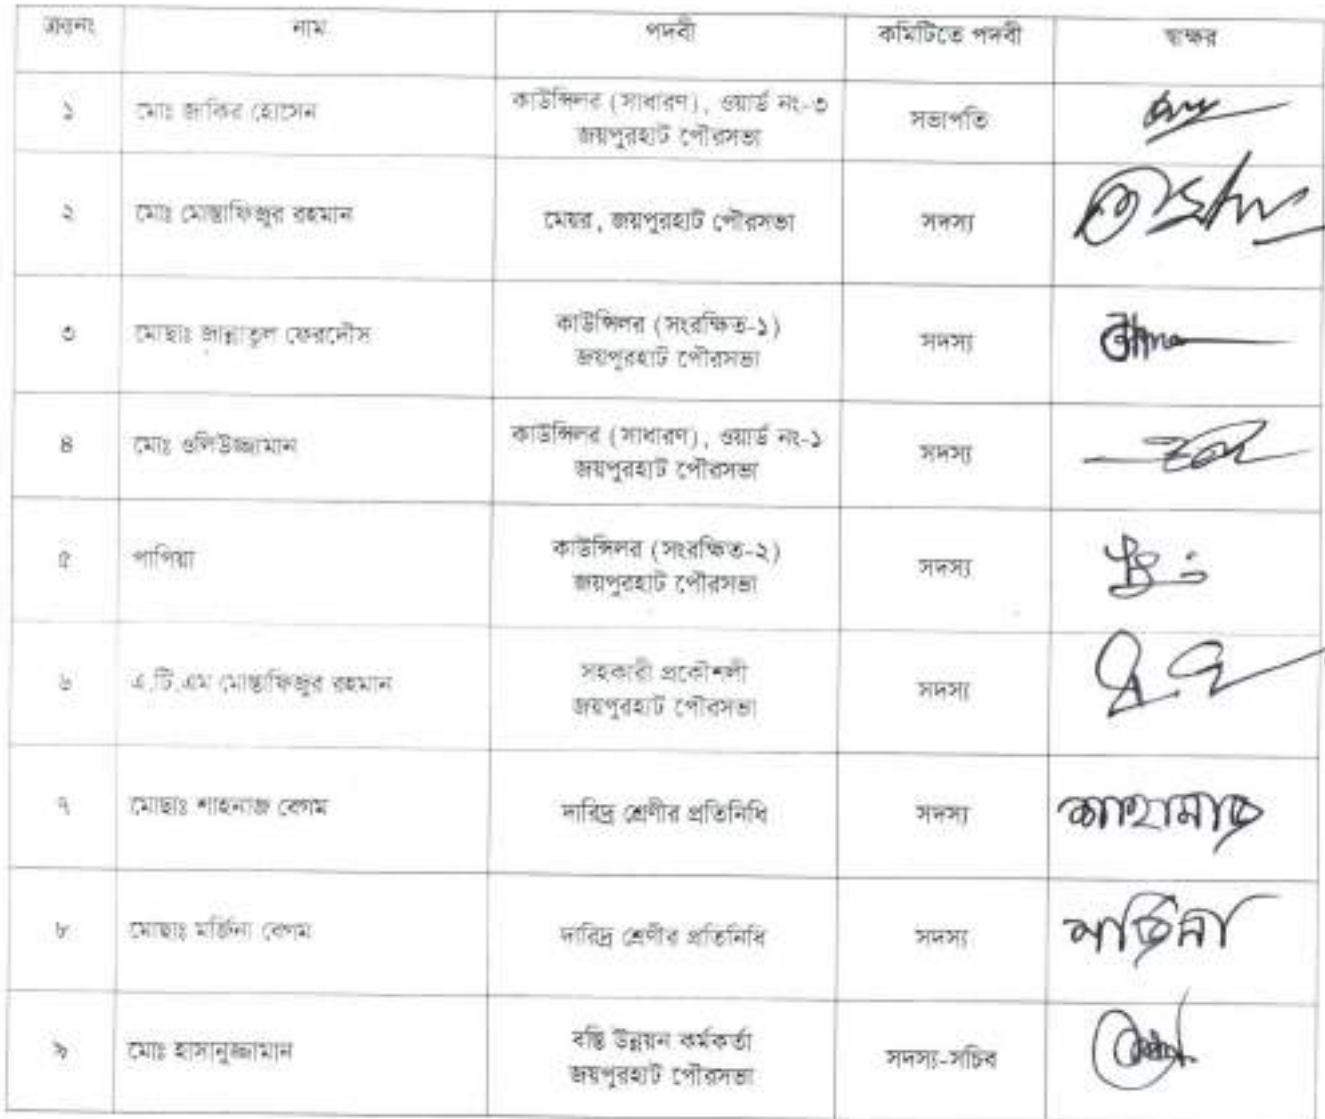 ক্রঃনং নাম পদবী কমিটিতে পদবী স্বাক্ষর
১ মোঃ জাকির হোসেন কাউন্সিলর (সাধারণ), ওয়ার্ড নং-৩
জয়পুরহাট পৌরসভা সভাপতি
২ মোঃ মোস্তাফিজুর রহমান মেয়র, জয়পুরহাট পৌরসভা সদস্য
৩ মোছাঃ জান্নাতুল ফেরদৌস কাউন্সিলর (সংরক্ষিত-১)
জয়পুরহাট পৌরসভা সদস্য
৪ মোঃ ওলিউজ্জামান কাউন্সিলর (সাধারণ), ওয়ার্ড নং-১
জয়পুরহাট পৌরসভা সদস্য
৫ পাপিয়া কাউন্সিলর (সংরক্ষিত-২)
জয়পুরহাট পৌরসভা সদস্য
৬ এ.টি.এম মোস্তাফিজুর রহমান সহকারী প্রকৌশলী
জয়পুরহাট পৌরসভা সদস্য
৭ মোছাঃ শাহনাজ বেগম দারিদ্র শ্রেণীর প্রতিনিধি সদস্য শাহানাজ
৮ মোছাঃ মর্জিনা বেগম দারিদ্র শ্রেণীর প্রতিনিধি সদস্য মর্জিনা
৯ মোঃ হাসানুজ্জামান বস্তি উন্নয়ন কর্মকর্তা
জয়পুরহাট পৌরসভা সদস্য-সচিব